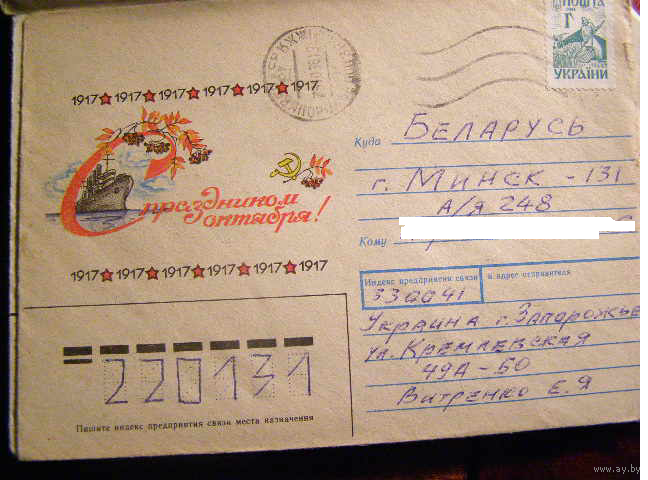 ПОШТА
Г
УКРАЇНИ
1917 ★ 1917 ★ 1917 ★ 1917 ★ 1917 ★ 1917 ★ 1917
С праздником
октября!
1917 ★ 1917 ★ 1917 ★ 1917 ★ 1917 ★ 1917 ★ 1917
Куда БЕЛАРУСЬ
г. МИНСК - 131
А/Я 248
Кому
Индекс предприятия связи и адрес отправителя
330041
УКРАИНА г. ЗАПОРОЖЬЕ
ул. КРЕМЛЕВСКАЯ
49А-50
ВИТРЕНКО Е.Я
220131
Пишите индекс предприятия связи места назначения
www.ay.by